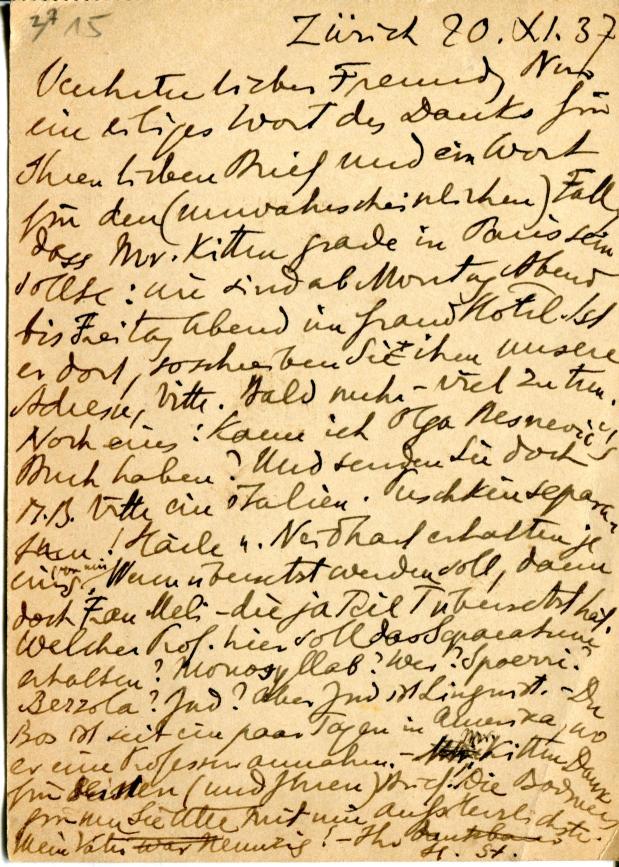 27 15
Zürich 20. XI. 37
Verehrter lieber Freund, Nur
ein eiliges Wort des Danks für
Ihren lieben Brief und ein Wort
für den (unwahrscheinlichen) Fall,
dass Mr. Kitten grade in Paris sein
sollte: wir sind ab Montag Abend
bis Freitag Abend im Grand Hotel. Ist
er dort, so schreiben Sie ihm unsere
Adresse, bitte. Bald mehr - viel zu tun.
Noch eins: Kann ich Olga Resnevič's
Buch haben? Und senden Sie doch
M.B. bitte ein italien. Puschkinsepara-
tum! Härle u. Neidhart erhalten je
eins, Wenn übersetzt werden soll, dann
doch Frau Meli - die ja Teil I übersetzt hat.
Welcher Prof. hier soll das Separatum
erhalten? Monosyllab? Wer? Spoerri?
Bezzola? Jud? Aber Jud ist Linguist. - Du
Bos ist seit ein paar Tagen in Amerika, wo
er eine Professur annahm. - Kitten Dank
für (und Ihnen) Brief. Die Bodmers
grüssen Sie mit mir aufs herzlichste.
Mein Vater war Neunzig! - Ihr
H. St.